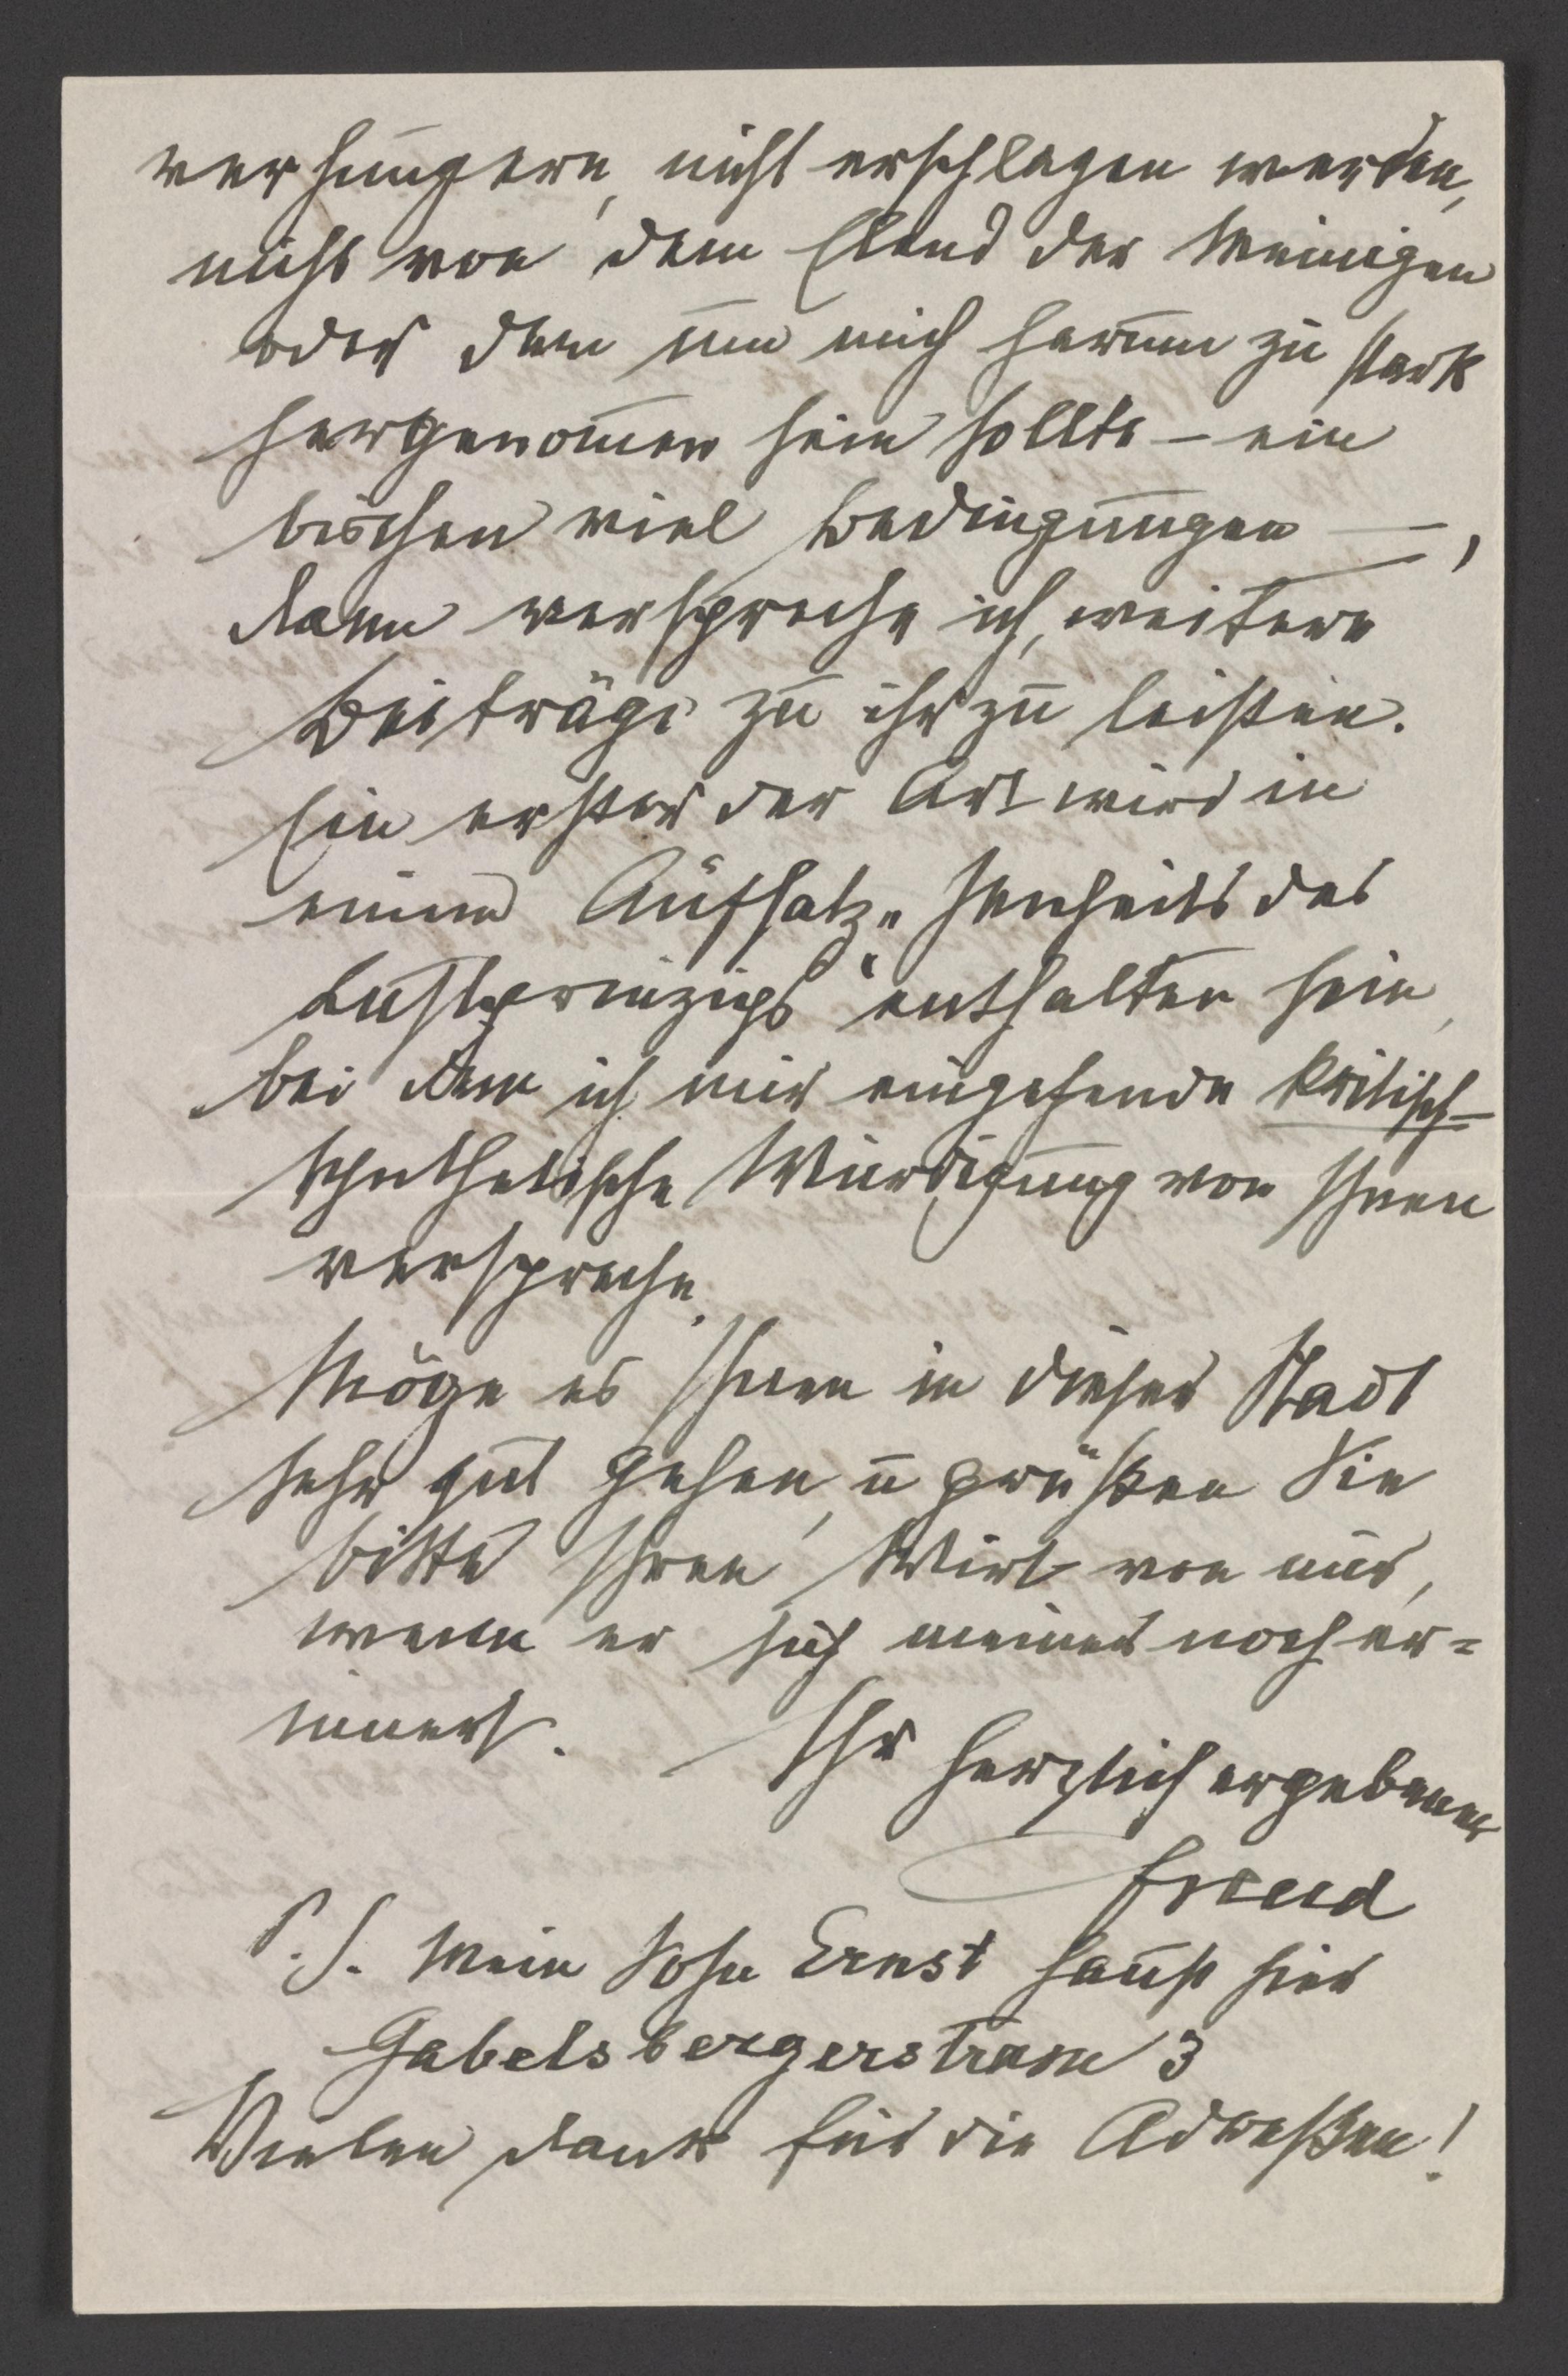 verhungern, nicht erschlagen werden,
nicht von dem Elend der Meinigen
oder dem um mich herum zu stark
hergenom̄en sein sollte – ein
bischen viel Bedingungen –,
dann verspreche ich, weitere
Beiträge zu ihr zu leisten.
Ein erster der Art wird in
einem Aufsatz „Jenseits des
Lustprinzips“ enthalten sein,
bei dem ich mir eingehende kritisch-
synthetische Würdigung von Ihnen
verspreche.
Möge es Ihnen in dieser Stadt
sehr gut gehen, u grüßen Sie
bitte Ihren Wirt von mir,
wenn er sich meiner noch er=
innert. Ihr herzlich ergebener
Freud
P.S. Mein Sohn Ernst haust hier
Gabelsbergerstrasse 3
Vielen Dank für die Adreßen!